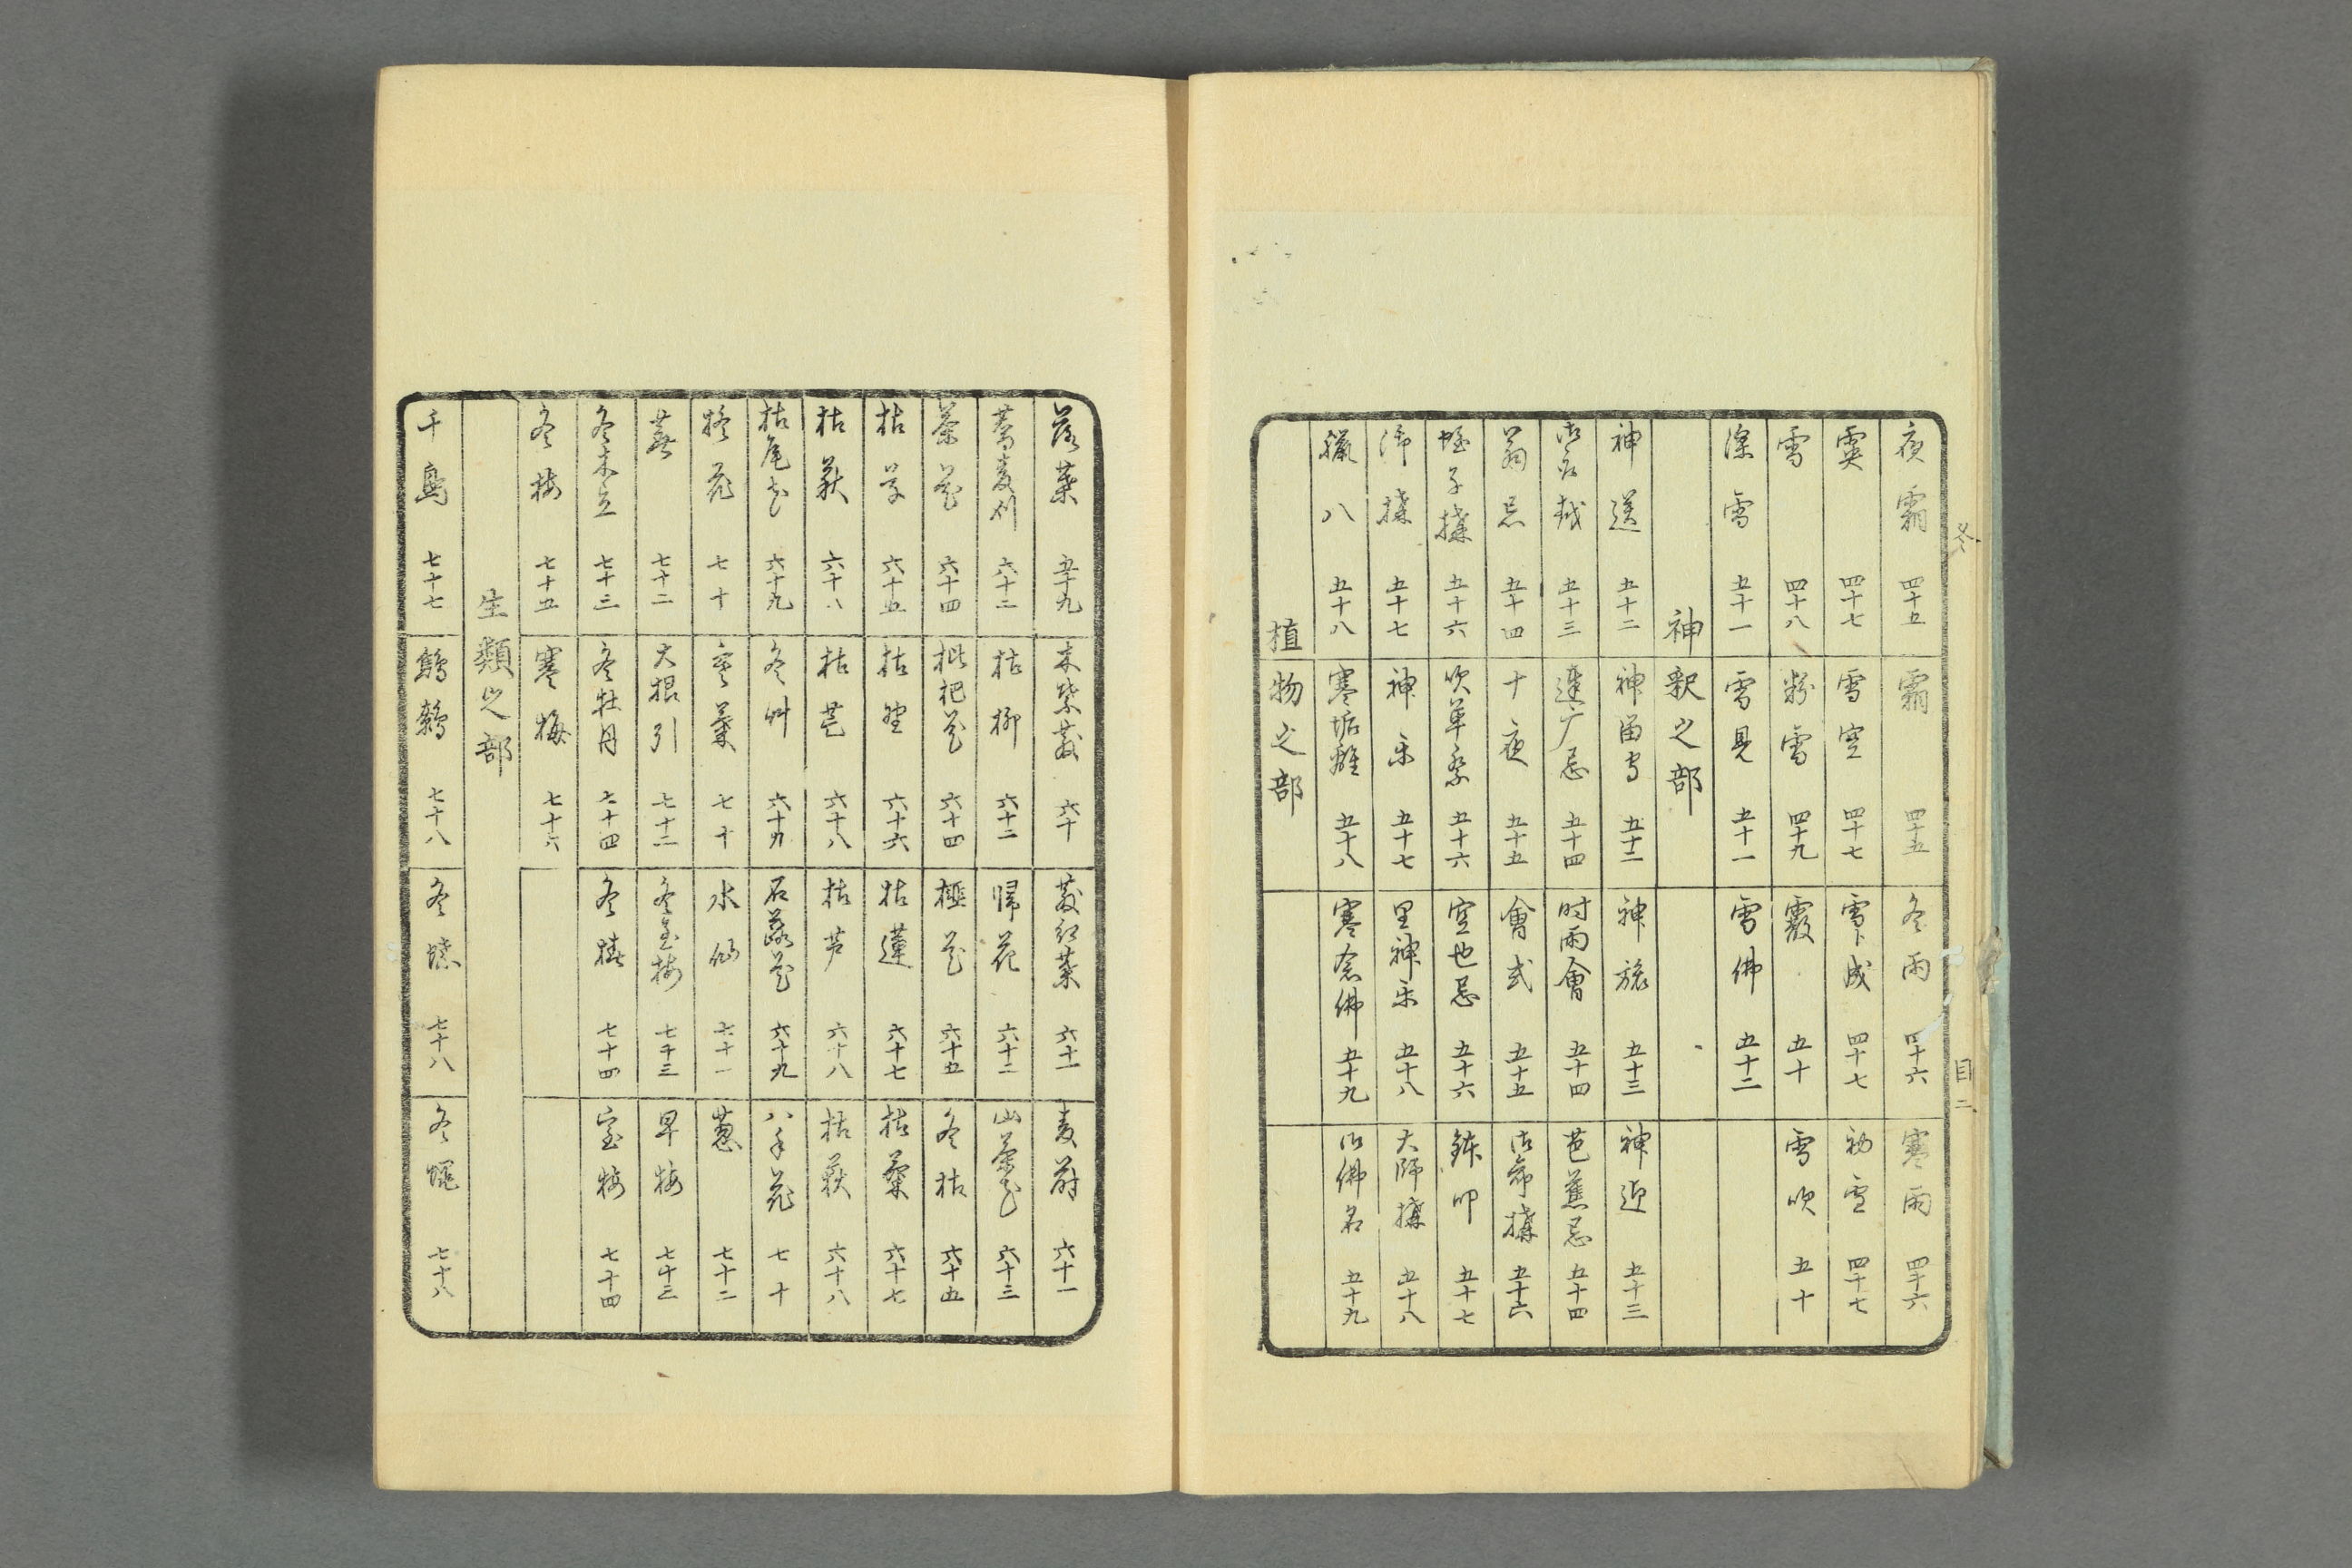 冬
目二
夜霜 四十五 霜 四十五 冬雨 四十六 寒雨 四十六
霙 四十七 雪空 四十七 雪卜成 四十七 初雪 四十七
雪 四十八 粉雪 四十九 霰 五十 雪吹 五十
深雪 五十一 雪見 五十一 雪佛 五十二
神釈之部
神送 五十二 神留守 五十二 神旅 五十三 神迎 五十三
御命
 五十三 達广忌 五十四 时雨會 五十四 芭蕉忌 五十四
翁忌 五十四 十夜 五十五 會式 五十五 御命講 五十六
蛭子講 五十六 吹革祭 五十六 空也忌 五十六 鉢叩 五十七
御講 五十七 神楽 五十七 里神楽 五十八 大師講 五十八
臘八 五十八 寒垢離 五十八 寒念佛 五十九 御佛名 五十九
植物之部
落葉 五十九 木葉散 六十 散紅葉 六十一 麦蒔 六十一
蕎麦刈 六十二 枯柳 六十二 帰花 六十二 山茶花 六十三
茶花 六十四 枇杷花 六十四 榧花 六十五 冬枯 六十五
枯草 六十五 枯野 六十六 枯蓮 六十七 枯菊 六十七
枯萩 六十八 枯芒 六十八 枯芦 六十八 枯荻 六十八
枯尾花 六十九 冬艸 六十九 石蕗花 六十九 八手花 七十
柊花 七十 寒菊 七十 水仙 七十一 葱 七十二
蕪 七十二 大根引 七十二 冬至梅 七十三 早梅 七十三
冬木立 七十三 冬牡丹 七十四 冬椿 七十四 室梅 七十四
冬梅 七十五 寒梅 七十六
生類之部
千鳥 七十七 鷦鷯 七十八 冬 七十八 冬蠅 七十八